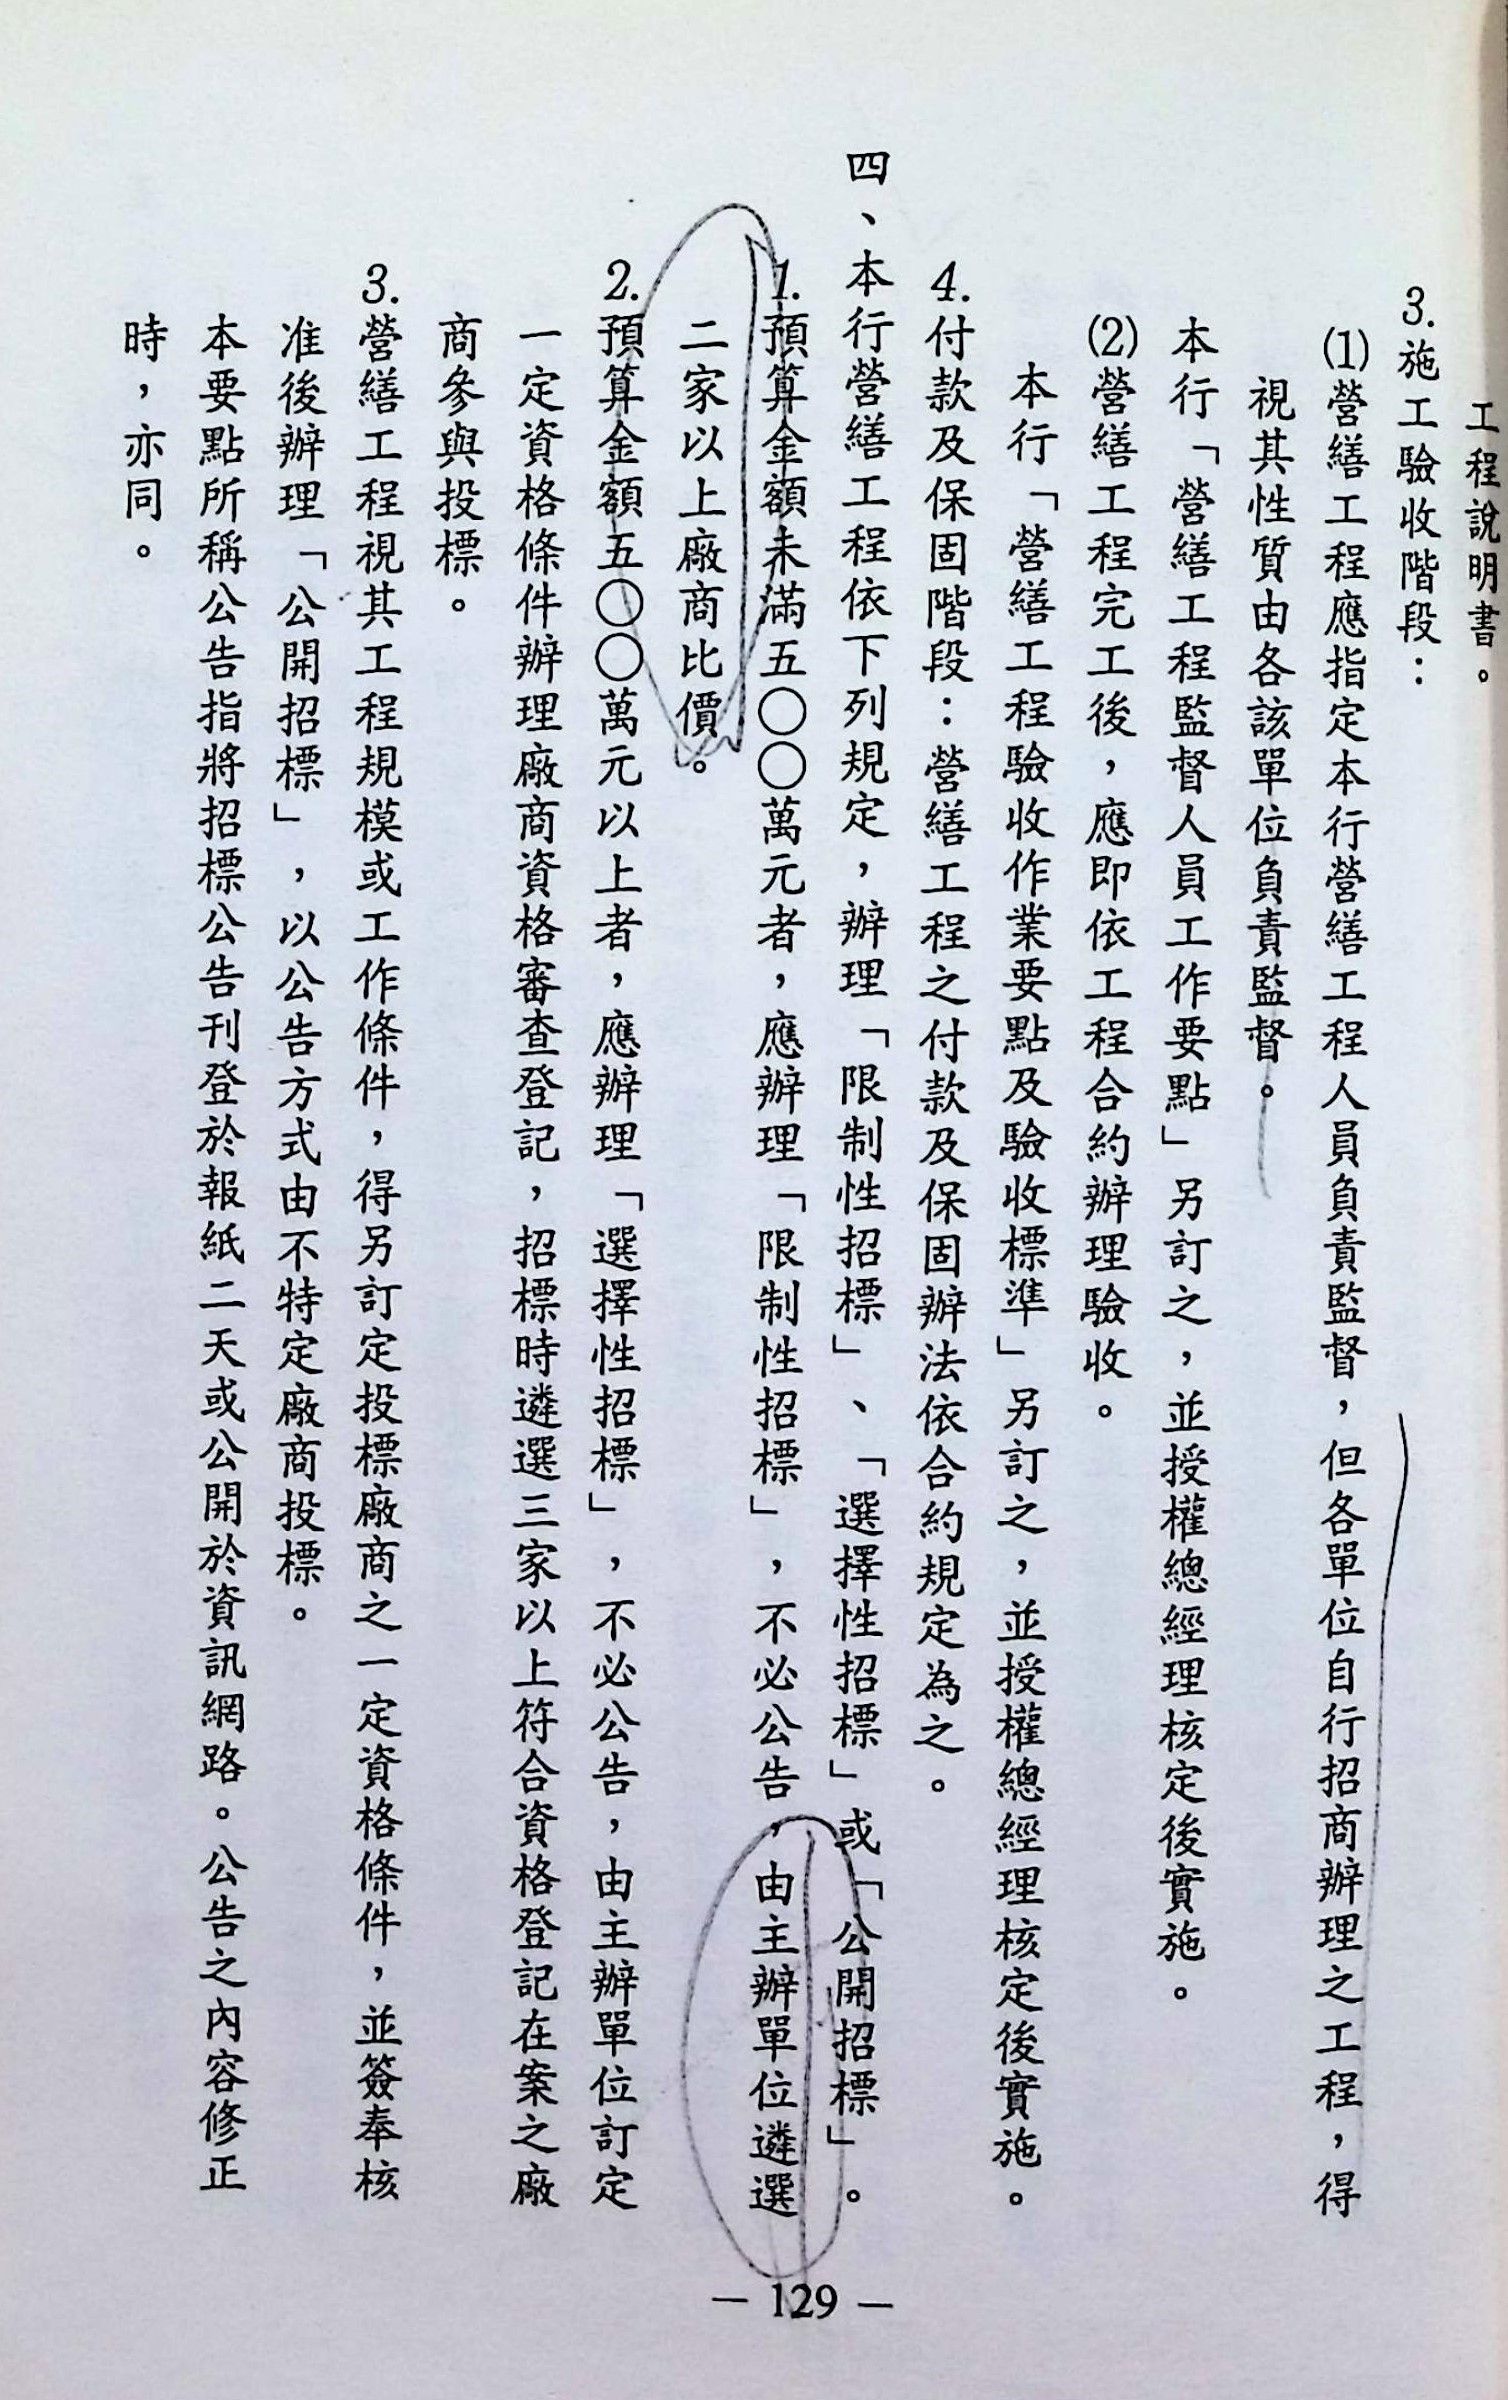 工程說明書。
3.施工驗收階段：
⑴營繕工程應指定本行營繕工程人員負責監督，但各單位自行招商辦理之工程，得
視其性質由各該單位負責監督。
本行「營繕工程監督人員工作要點」另訂之，並授權總經理核定後實施。
⑵營繕工程完工後，應即依工程合約辦理驗收。
本行「營繕工程驗收作業要點及驗收標準」另訂之，並授權總經理核定後實施。
4.付款及保固階段：營繕工程之付款及保固辦法依合約規定為之。
四、本行營繕工程依下列規定，辦理「限制性招標」、「選擇性招標」或「公開招標」。
1.預算金額未滿五〇〇萬元者，應辦理「限制性招標」，不必公告，由主辦單位遴選
二家以上廠商比價。
2.預算金額五〇〇萬元以上者，應辦理「選擇性招標」，不必公告，由主辦單位訂定
一定資格條件辦理廠商資格審查登記，招標時遴選三家以上符合資格登記在案之廠
商參與投標。
3.營繕工程視其工程規模或工作條件，得另訂定投標廠商之一定資格條件，並簽奉核
准後辦理「公開招標」，以公告方式由不特定廠商投標。
本要點所稱公告指將招標公告刊登於報紙二天或公開於資訊網路。公告之內容修正
時，亦同。
— 129 —